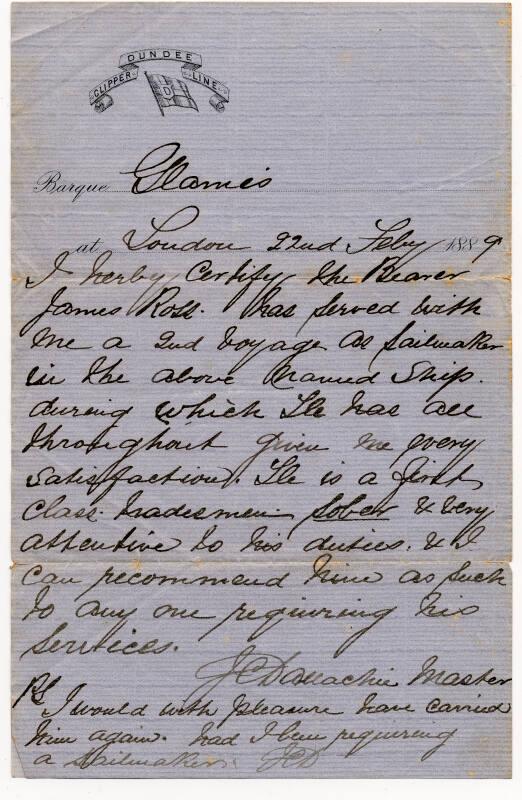 DUNDEE
CLIPPER LINE
D
Barque Glamis
at London 22nd Feby 1889
I herby Certify the Bearer
James Ross. has served with
me a 2nd Voyage as Sailmaker
in the above Named Ship.
during which He has all
throughout given me every
Satisfaction. He is a first
Class tradesmen sober & very
attentive to his duties. & I
can recommend him as such
to any one requiring his
Services.
Master
PS
I would with pleasure have carried
him again. had I been requiring
a Sailmaker. JCD